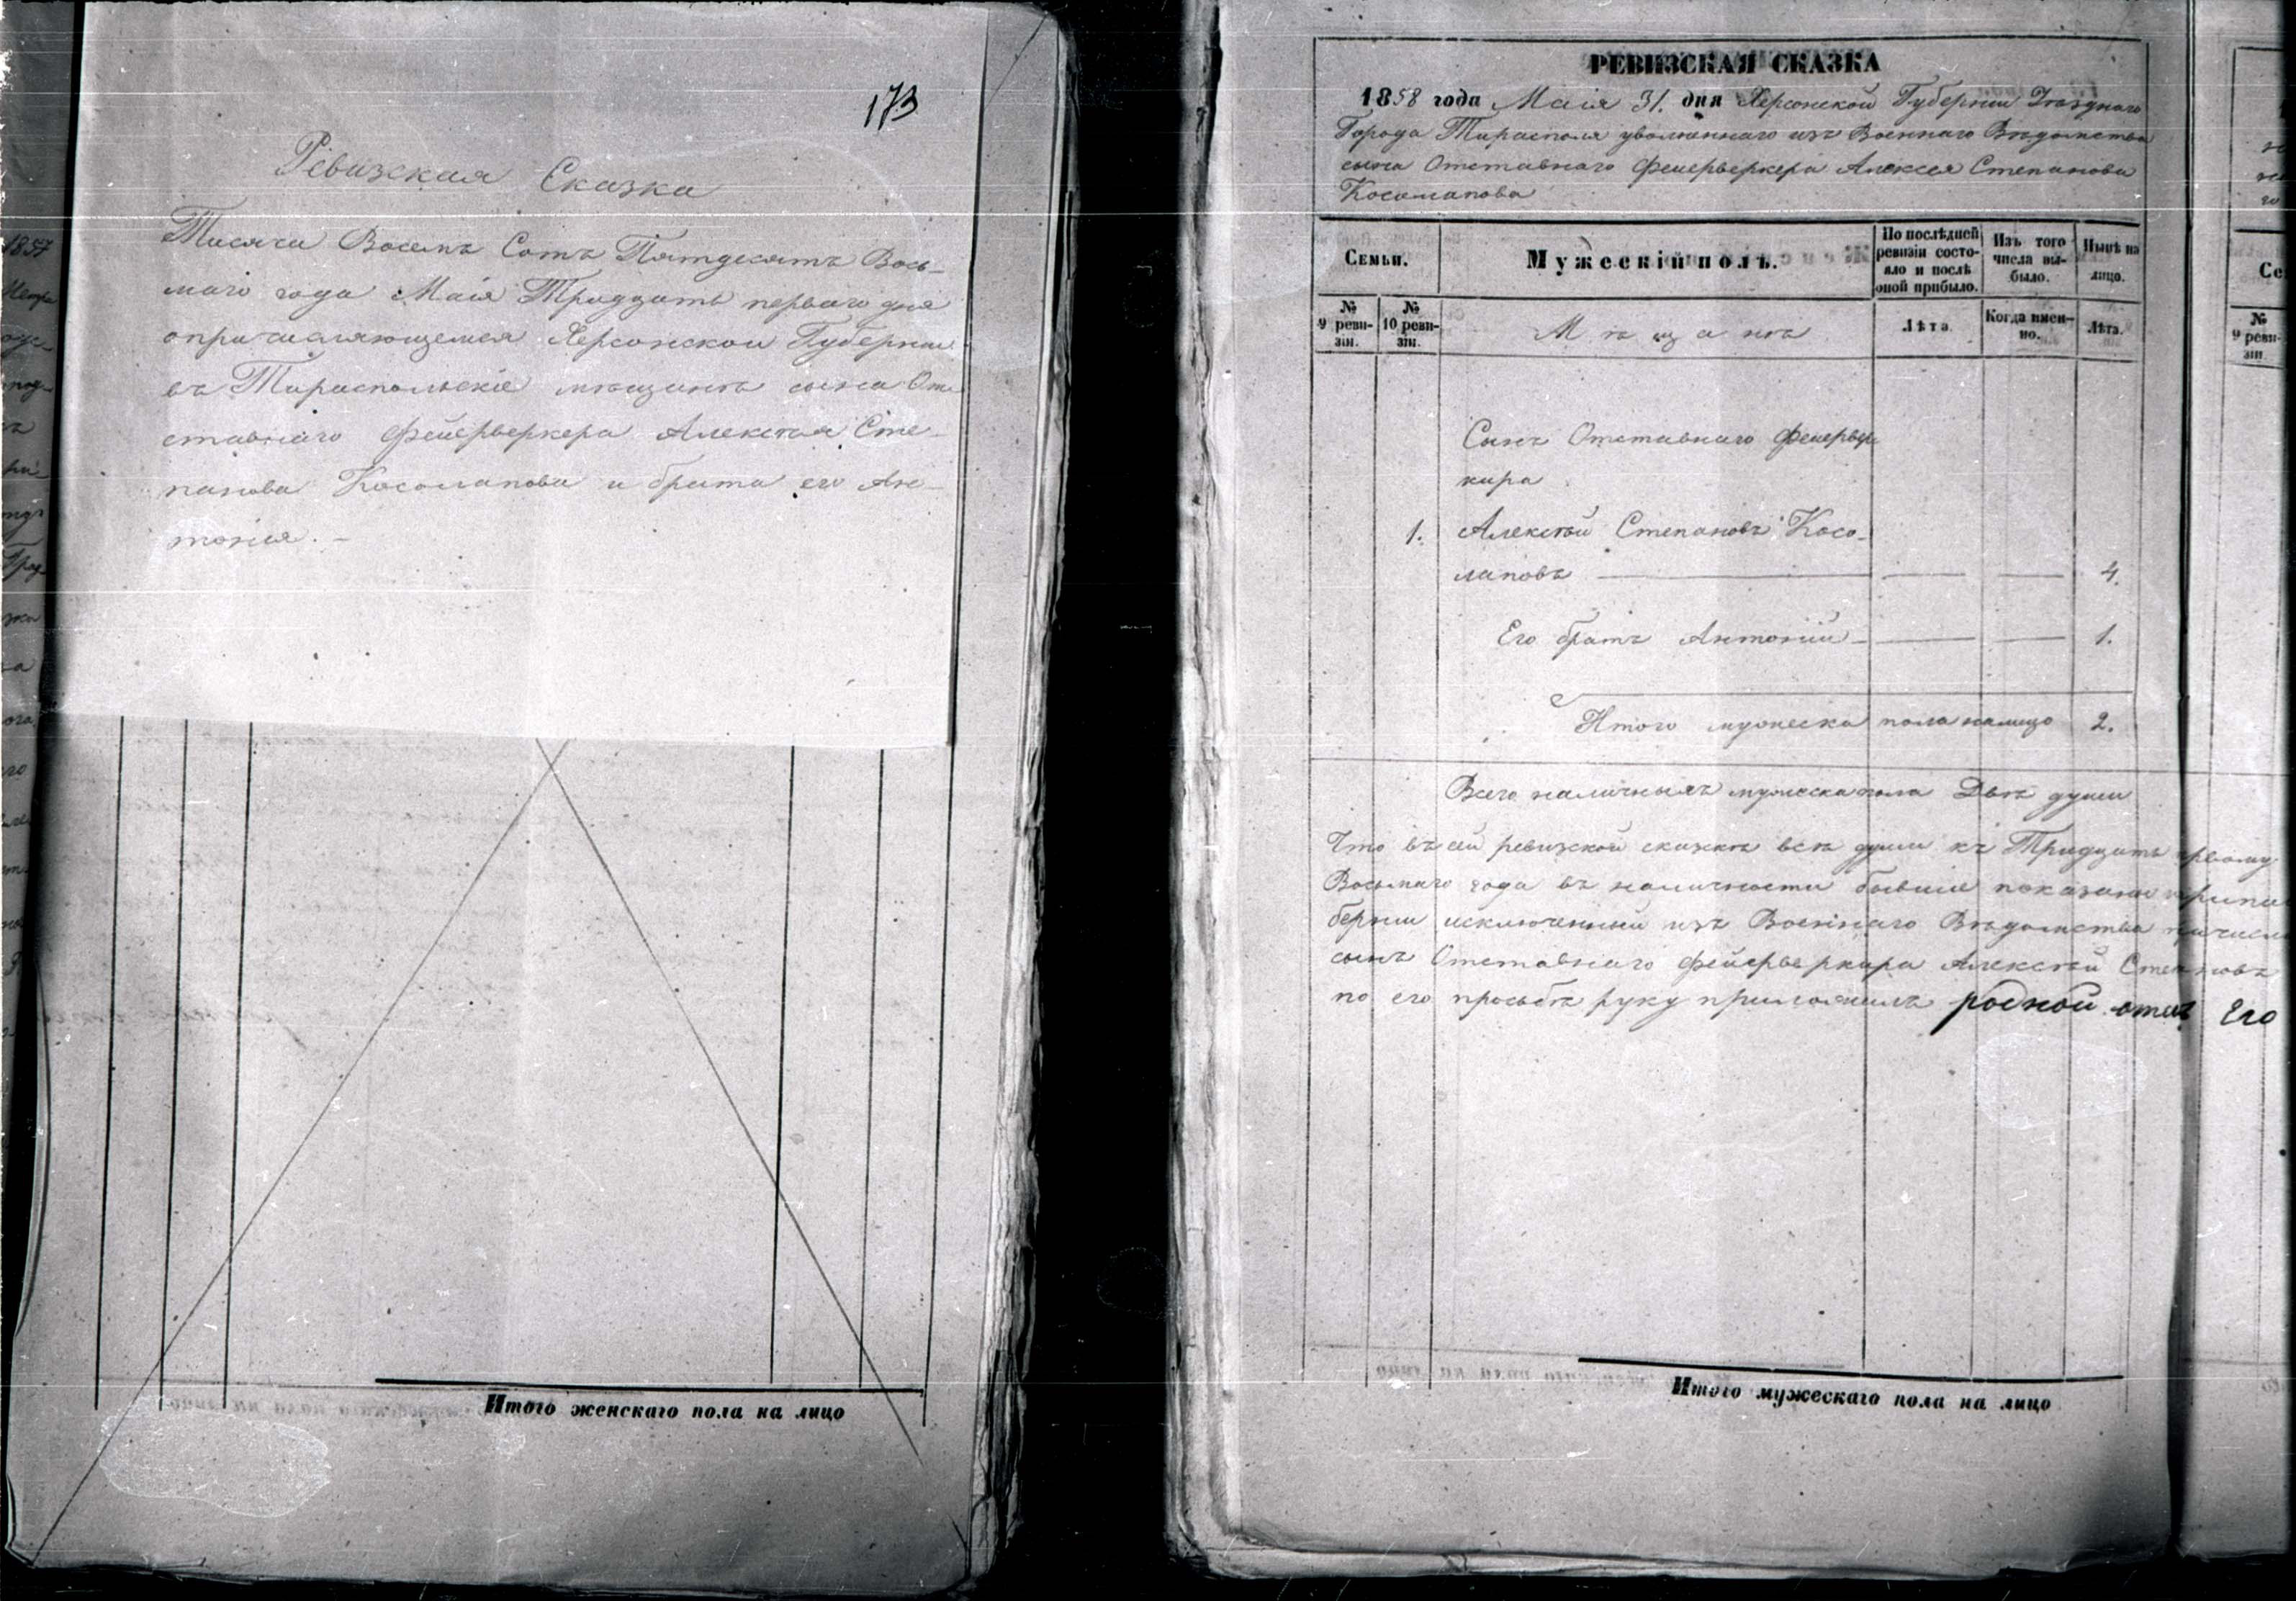 173
Ревизская Сказка
Тысяча Восемъ Сотъ Пятдесятъ Вось-
маго года Маія Тридцать перваго дня
опричисляющемся Херсонской Губерніи
въ Тираспольскіе мѣщане сына От-
ставнаго Фейерверкера Алексѣя Сте-
панова Косолапова и брата его Ан-
тонія. -
Итого женскаго пола на лицо
РЕВИЗСКАЯ СКАЗКА
1858 года Маія 31. дня Херсонской Губерніи Уѣзднаго
Города Тирасполя уволеннаго изъ Военнаго Вѣдомства
сына Отставнаго Фейерверкера Алексея Степанова
Косолапова
Семьи. Мужескій полъ. По послѣдней ревизіи состояло и послѣ оной прибыло. Изъ того числа выбыло. Нынѣ на лицо.
№ 9 ревизіи. № 10 ревизіи. Мѣщане Лѣта. Когда именно. Лѣта.
Сынъ Отставнаго Фейервер
кера
1. Алексѣй Степановъ Косо-
лаповъ 4.
Его братъ Антоній 1.
Итого мужеска пола налицо 2.
Всего наличныхъ мужеска пола Двѣ души
Что въ сей ревизской сказкѣ всѣ души къ Тридцать первому
Восьмаго года въ наличности бывшіе показаны
берніи исключенный изъ Военнаго Вѣдомства
сынъ Отставнаго Фейерверкера Алексѣй Степановъ
по его просьбѣ руку приложилъ родной отецъ Его
Итого мужескаго пола на лицо